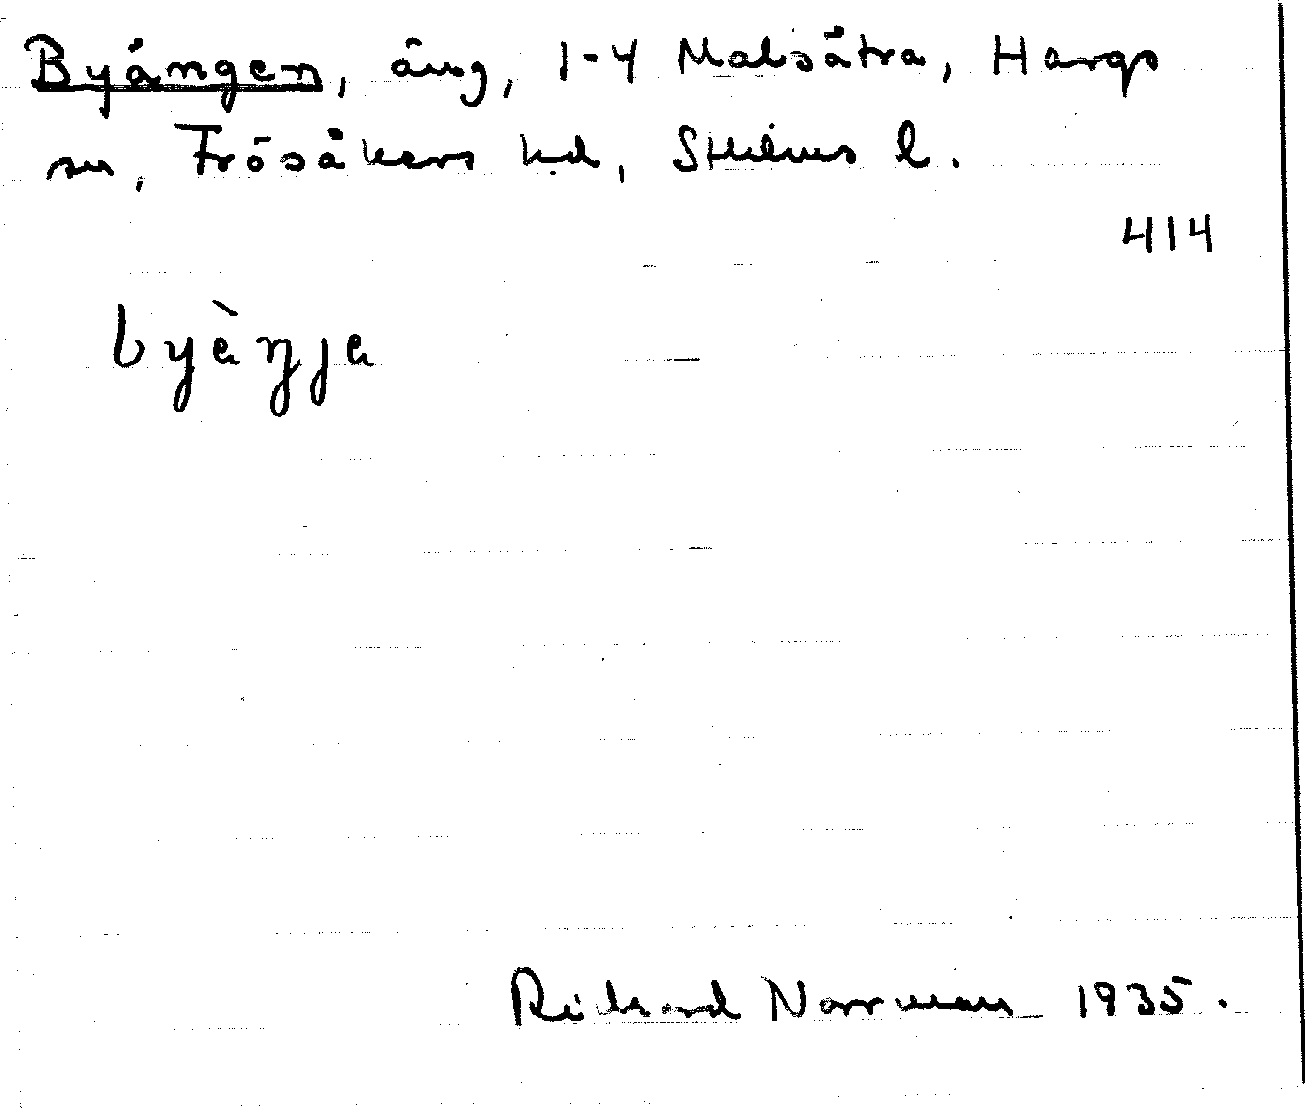 Byängen, äng, 1-4 Malsätra, Hargs
sn, Frösåkers hd, Sthlms l.
414
byàŋja
Richard Norrman 1935.